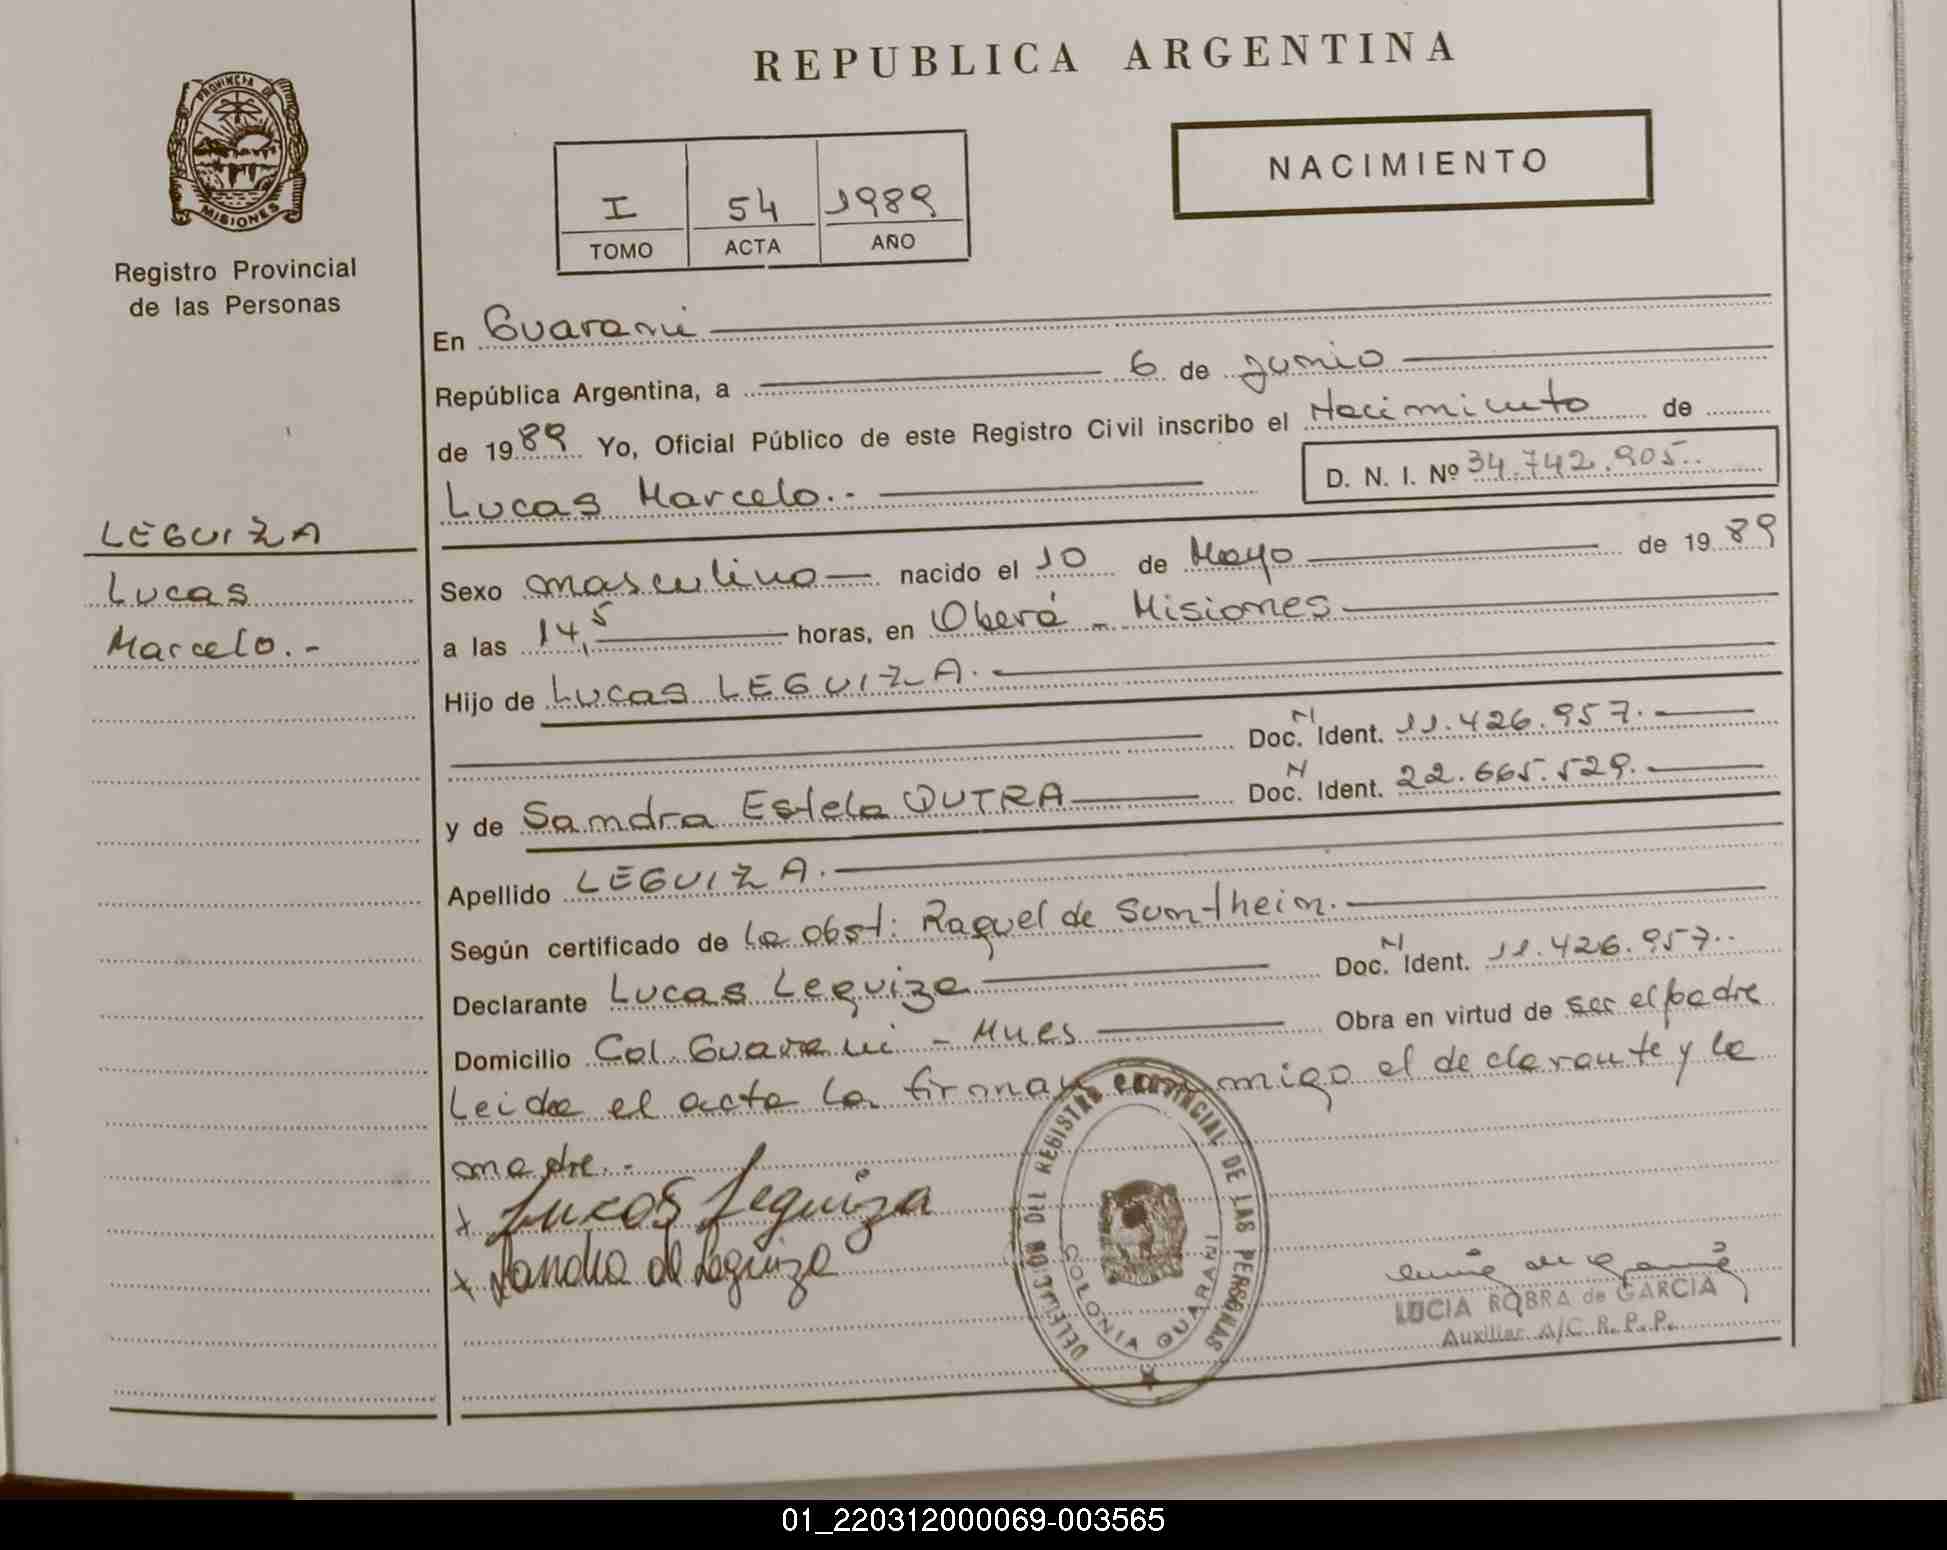 REPUBLICA ARGENTINA
PROVINCIA DE
MISIONES
NACIMIENTO
I 54 1989
TOMO ACTA AÑO
Registro Provincial
de las Personas
En Guarani
República Argentina, a 6 de Junio
de 1989 Yo, Oficial Público de este Registro Civil inscribo el Nacimiento de
Lucas Marcelo.- D. N. I. Nº 34.742.905.
LEGUIZA
Lucas
Marcelo.-
Sexo masculino nacido el 10 de Mayo de 1989
a las 14,5 horas, en Oberá - Misiones
Hijo de Lucas LEGUIZA.
Doc. N Ident. 11.426.957.
y de Sandra Estela DUTRA Doc. N Ident. 22.665.529.
Apellido LEGUIZA.
Según certificado de la obst: Raquel de Sontheim.
Declarante Lucas Leguiza Doc. N Ident. 11.426.957.
Domicilio Col. Guarani - Mnes Obra en virtud de ser el padre
Leida el acta la firman conmigo el declarante y la
madre.-
x Lucas Leguiza
x Sandra de Leguiza
DELEGACION DEL REGISTRO PROVINCIAL DE LAS PERSONAS
COLONIA GUARANI
LUCIA ROBRA de GARCIA
Auxiliar A/C R.P.P.
01_220312000069-003565